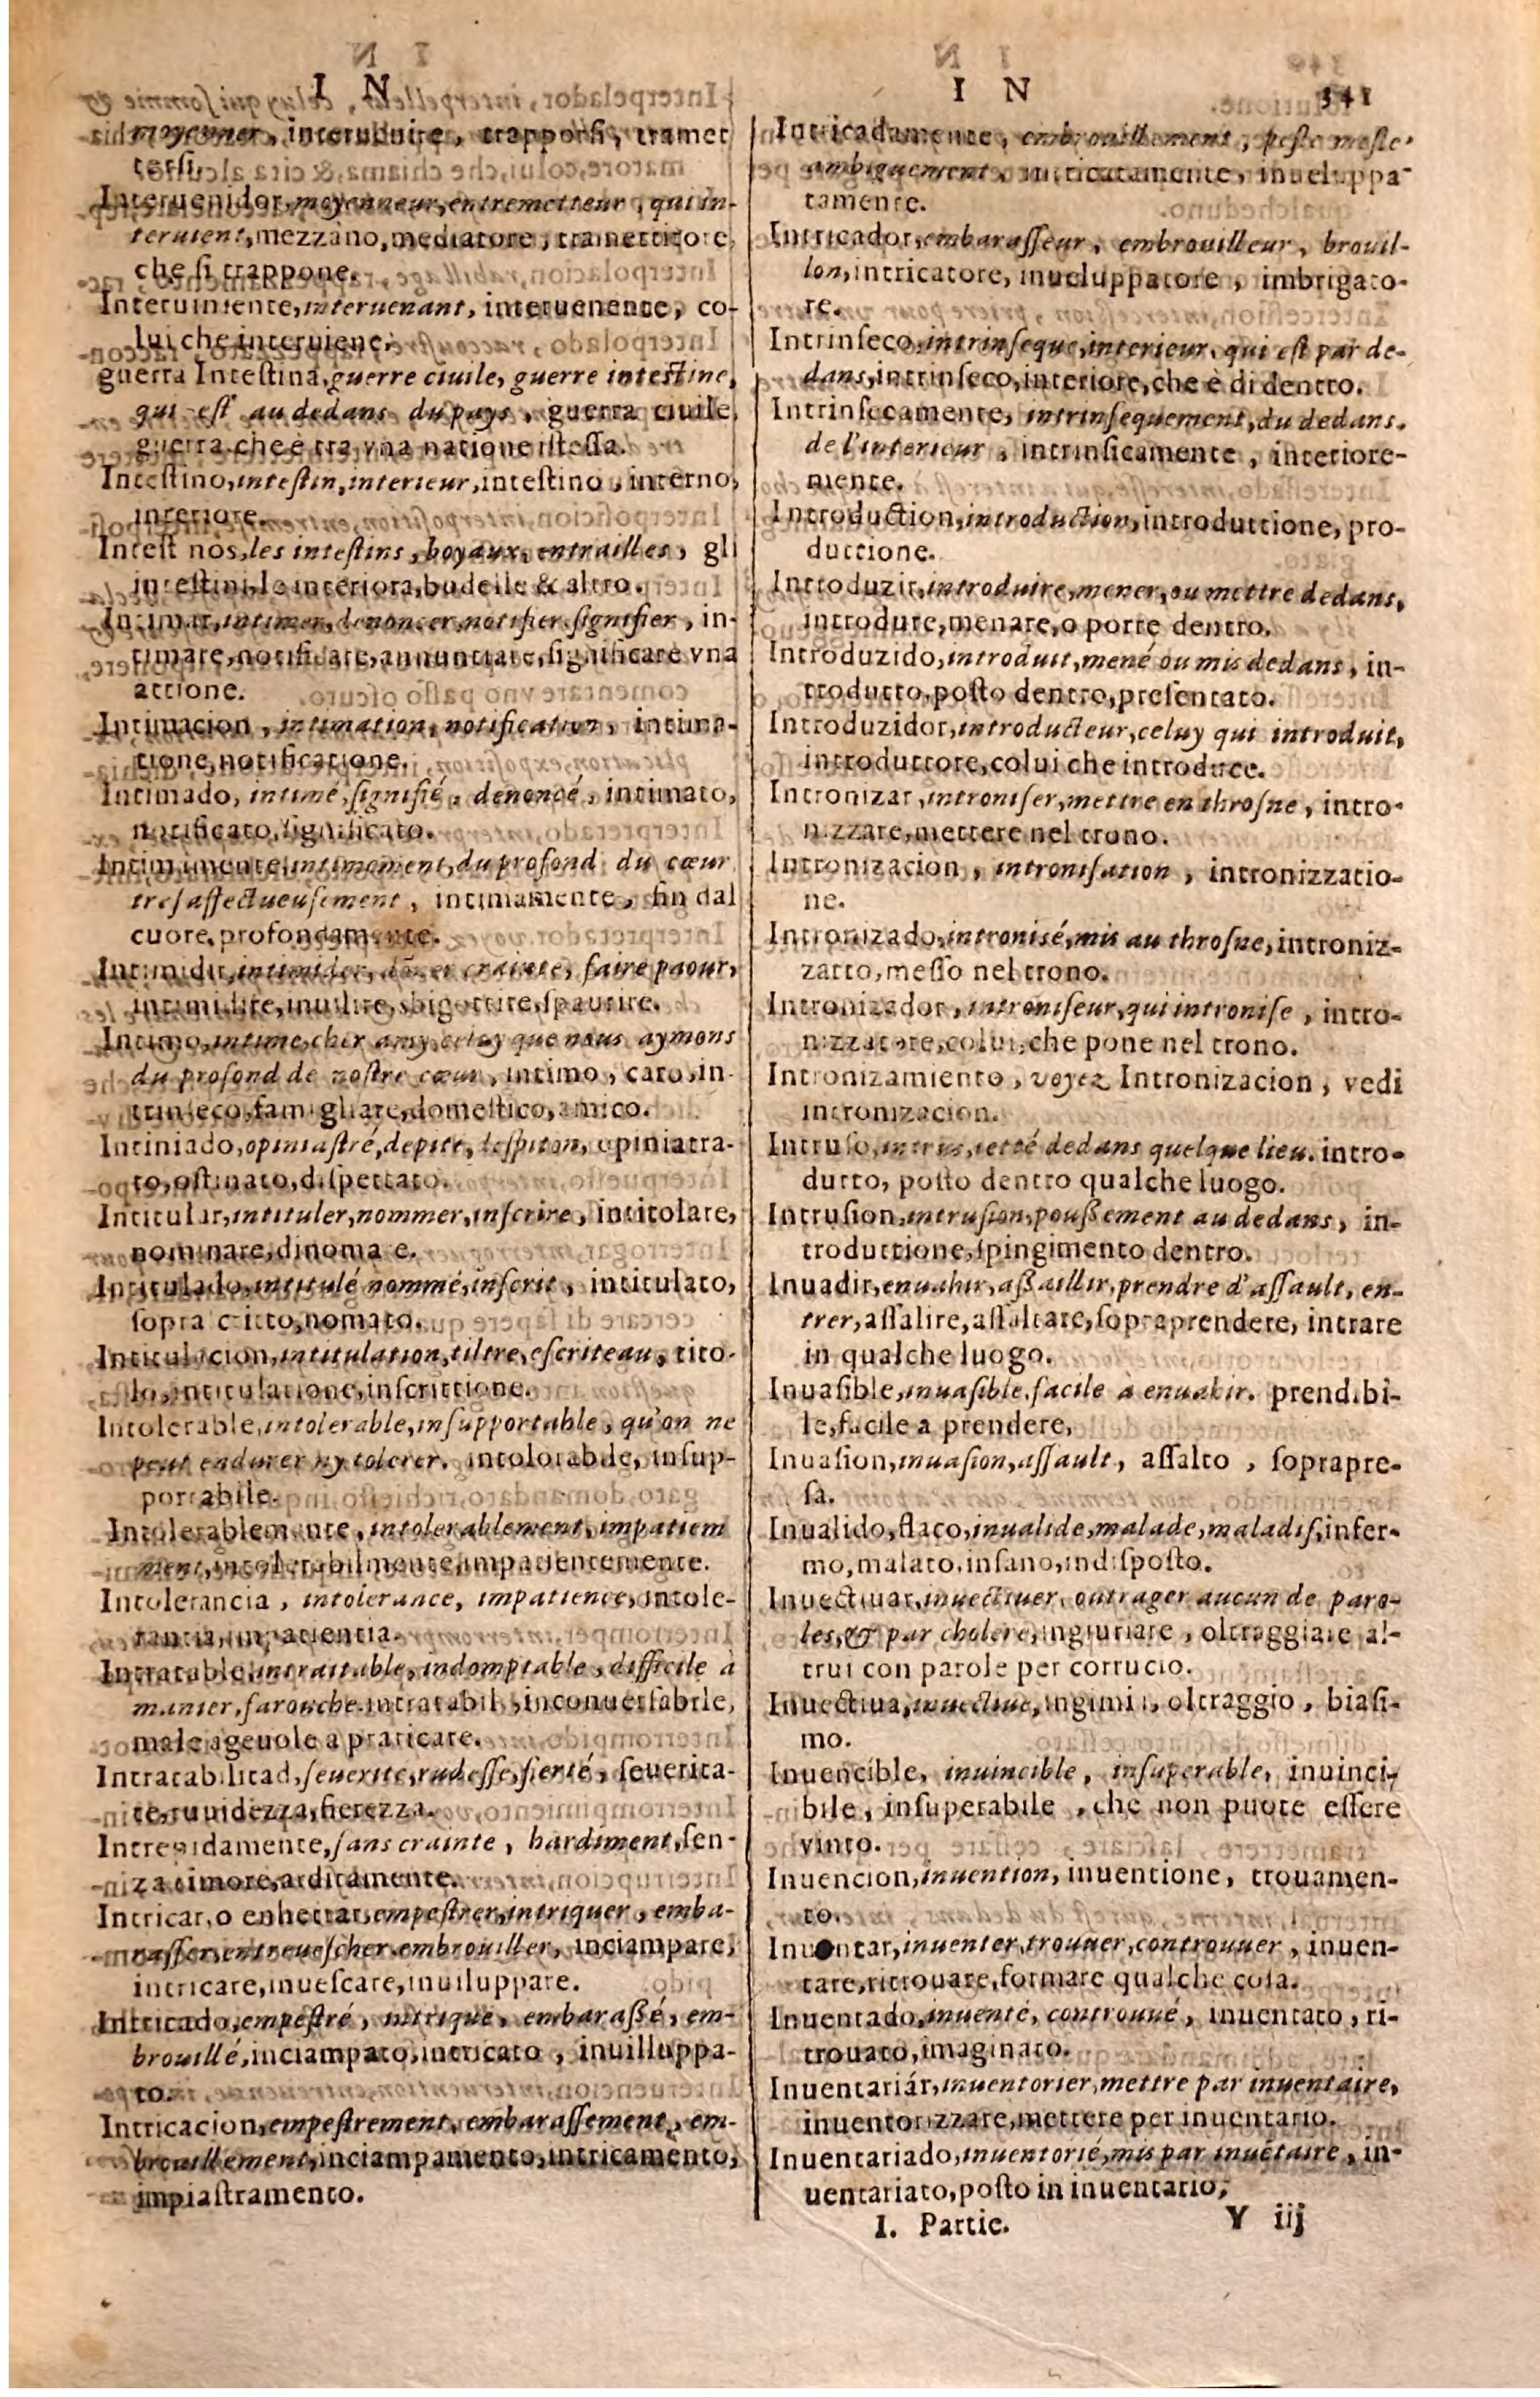 I N
moyenner, interuenire, trapporsi, tramet
tersi.
Interuenidor, moyenneur, entremetteur, qui in-
teruient, mezzano, mediatore, tramettitore,
che si trappone.
Interuiniente, interuenant, interuenente, co-
lui che interuiene.
guerra Intestina, guerre ciuile, guerre intestine,
qui est au dedans du pays, guerra ciuile,
guerra che è tra vna natione istessa.
Intestino, intestin, interieur, intestino, interno,
interiore.
Intest nos, les intestins, boyaux, entrailles, gli
intestini, le interiora, budelle & altro.
Intimar, intimer, denoncer, notifier, signifier, in-
timare, notificare, annuntiare, significare vna
attione.
Intimacion, intimation, notification, intima-
tione, notificatione.
Intimado, intimé, signifié, denoncé, intimato,
notificato, significato.
Intimamente, intimement, du profond du cœur
tresaffectueusement, intimamente, fin dal
cuore, profondamente.
Intimidir, intimider, dõner crainte, faire paour,
intimidire, inuilire, sbigottire, spaurire.
Intimo, intime, cher amy, celuy que nous aymons
du profond de nostre cœur, intimo, caro, in-
trinseco, famigliare, domestico, amico.
Intiniado, opiniastré, depite, despiton, opiniatra-
to, ostinato, dispettato.
Intitular, intituler, nommer, inscrire, intitolare,
nominare, dinoma e.
Intitulado, intitulé nommé, inscrit, intitulato,
sopra critto, nomato.
Intitulacion, intitulation, tiltre, escriteau, tito-
lo, intitulatione, inscrittione.
Intolerable, intolerable, insupportable, qu'on ne
peut endurer ny tolerer, intolorabile, insup-
portabile.
Intolerablemente, intolerablement, impatiem
ment, intolerabilmente, impatientemente.
Intolerancia, intolerance, impatience, intole-
rantia, impatientia.
Intratable, intraitable, indomptable, difficile à
manier, farouche, intratabil, inconuersabile,
male ageuole a praticare.
Intratabilitad, seuerité, rudesse, fierté, seuerita-
te, ruuidezza, fierezza.
Intrepidamente, sans crainte, hardiment, sen-
za timore, arditamente.
Intricar, o enhetrar, empestrer, intriquer, emba-
rasser, entreuescher, embrouiller, inciampare,
intricare, inuescare, inuiluppare.
Intricado, empestré, intriqué, embaraßé, em-
brouillé, inciampato, intricato, inuilluppa-
to.
Intricacion, empestrement, embarassement, em-
brouillement, inciampamento, intricamento,
impiastramento.
I N 341
Intricadamente, embrouillement, peste meste,
ambiguement, intricatamente, inueluppa-
tamente.
Intricador, embarasseur, embrouilleur, brouil-
lon, intricatore, inueluppatore, imbrigato-
re.
Intrinseco, intrinseque, interieur, qui est par de-
dans, intrinseco, interiore, che è di dentro.
Intrinsecamente, intrinsequement, du dedans,
de l'interieur, intrinsicamente, interiore-
mente.
Introduction, introduction, introduttione, pro-
duttione.
Introduzir, introduire, mener, ou mettre dedans,
introdure, menare, o porre dentro.
Introduzido, introduit, mené ou mis dedans, in-
trodutto, posto dentro, presentato.
Introduzidor, introducteur, celuy qui introduit,
introduttore, colui che introduce.
Intronizar, introniser, mettre en throsne, intro-
nizzare, mettere nel trono.
Intronizacion, intronisation, intronizzatio-
ne.
Intronizado, intronisé, mis au throsne, introniz-
zatto, messo nel trono.
Intronizador, introniseur, qui intronise, intro-
nizzatore, colui, che pone nel trono.
Intronizamiento, voyez Intronizacion, vedi
intronizacion.
Intruso, intrus, ietté dedans quelque lieu. intro-
dutto, posto dentro qualche luogo.
Intrusion, intrusion, poußement au dedans, in-
troduttione, spingimento dentro.
Inuadir, enuahir, aßaillir, prendre d'assault, en-
trer, assalire, assaltare, sopraprendere, intrare
in qualche luogo.
Inuasible, inuasible, facile à enuahir. prendibi-
le, facile a prendere.
Inuasion, inuasion, assault, assalto, soprapre-
sa.
Inualido, flaco, inualide, malade, maladif, infer-
mo, malato, insano, indisposto.
Inuectiuar, inuectiuer, outrager aucun de paro-
les, & par cholere, ingiuriare, oltraggiare al-
trui con parole per corrucio.
Inuectiua, inuectiue, oltraggio, biasi-
mo.
Inuencible, inuincible, insuperable, inuinci-
bile, insuperabile, che non puote essere
vinto.
Inuencion, inuention, inuentione, trouamen-
to.
Inuentar, inuenter, trouuer, controuuer, inuen-
tare, ritrouare, formare qualche cosa.
Inuentado, inuenté, controuué, inuentato, ri-
trouato, imaginato.
Inuentariár, inuentorier, mettre par inuentaire,
inuentorizzare, mettere per inuentario.
Inuentariado, inuentorié, mis par inuẽtaire, in-
uentariato, posto in inuentario,
I. Partie. Y iij